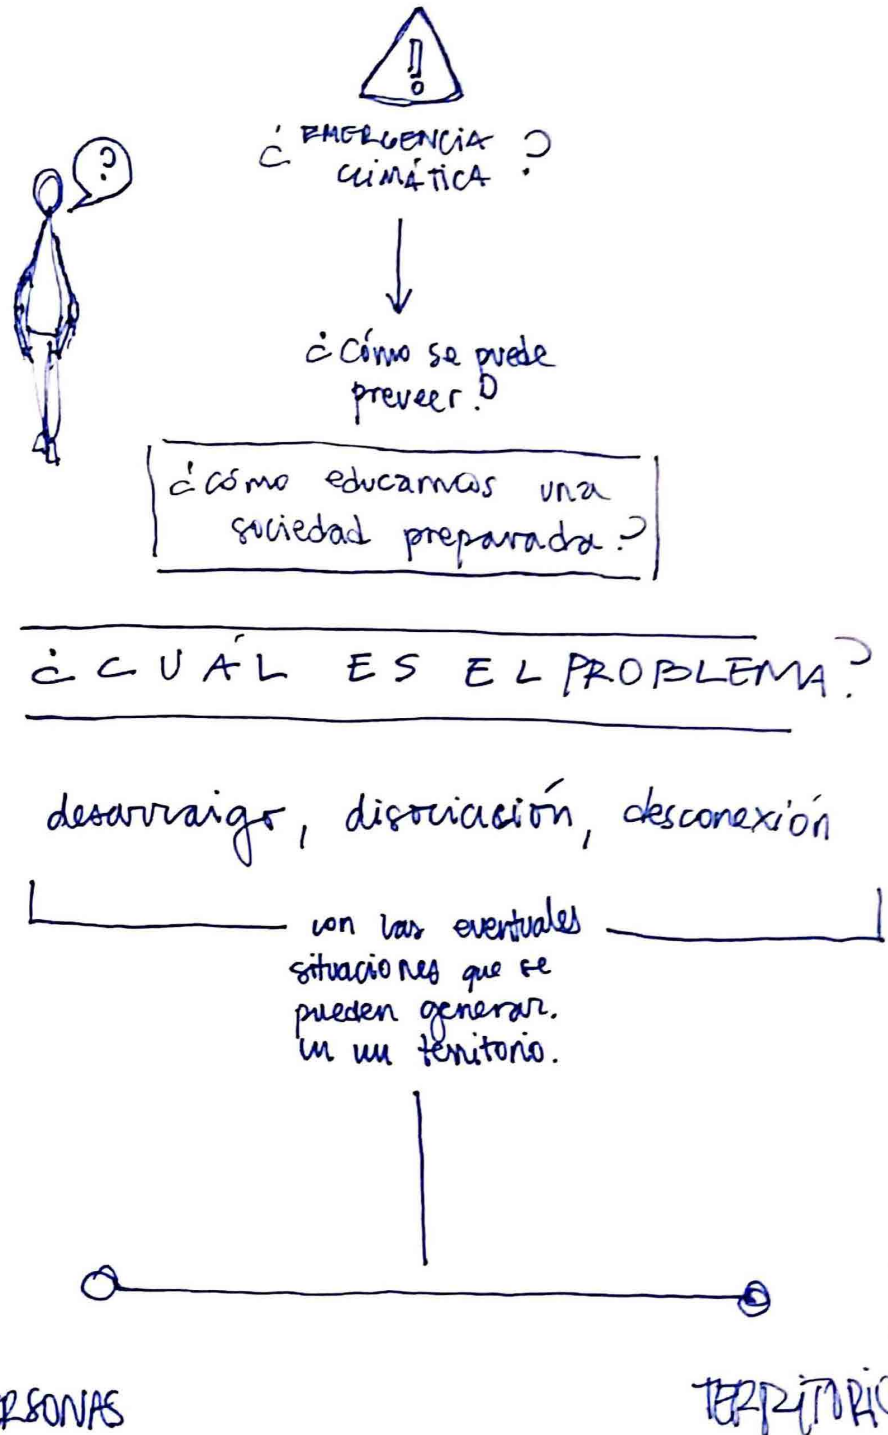 !
¿EMERGENCIA
CLIMÁTICA?
?
¿Cómo se puede
preveer?
¿cómo educamos una
sociedad preparada?
¿CUÁL ES EL PROBLEMA?
desarraigo, disociación, desconexión
con las eventuales
situaciones que se
pueden generar.
en un territorio.
RSONAS
TERRITORIO